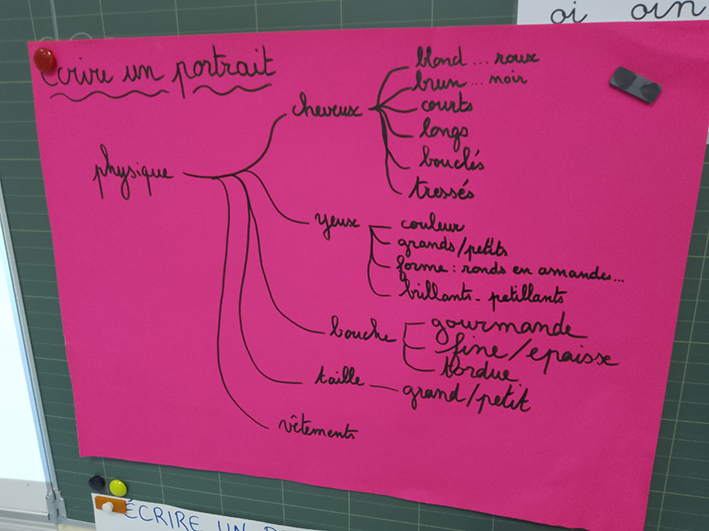 oi oin
Écrire un portrait
physique
cheveux
blond ... roux
brun ... noir
courts
longs
bouclés
tressés
yeux
couleur
grands/petits
forme : ronds en amandes...
brillants - petillants
bouche
gourmande
fine/epaisse
tordue
taille
grand/petit
vêtements
ÉCRIRE UN